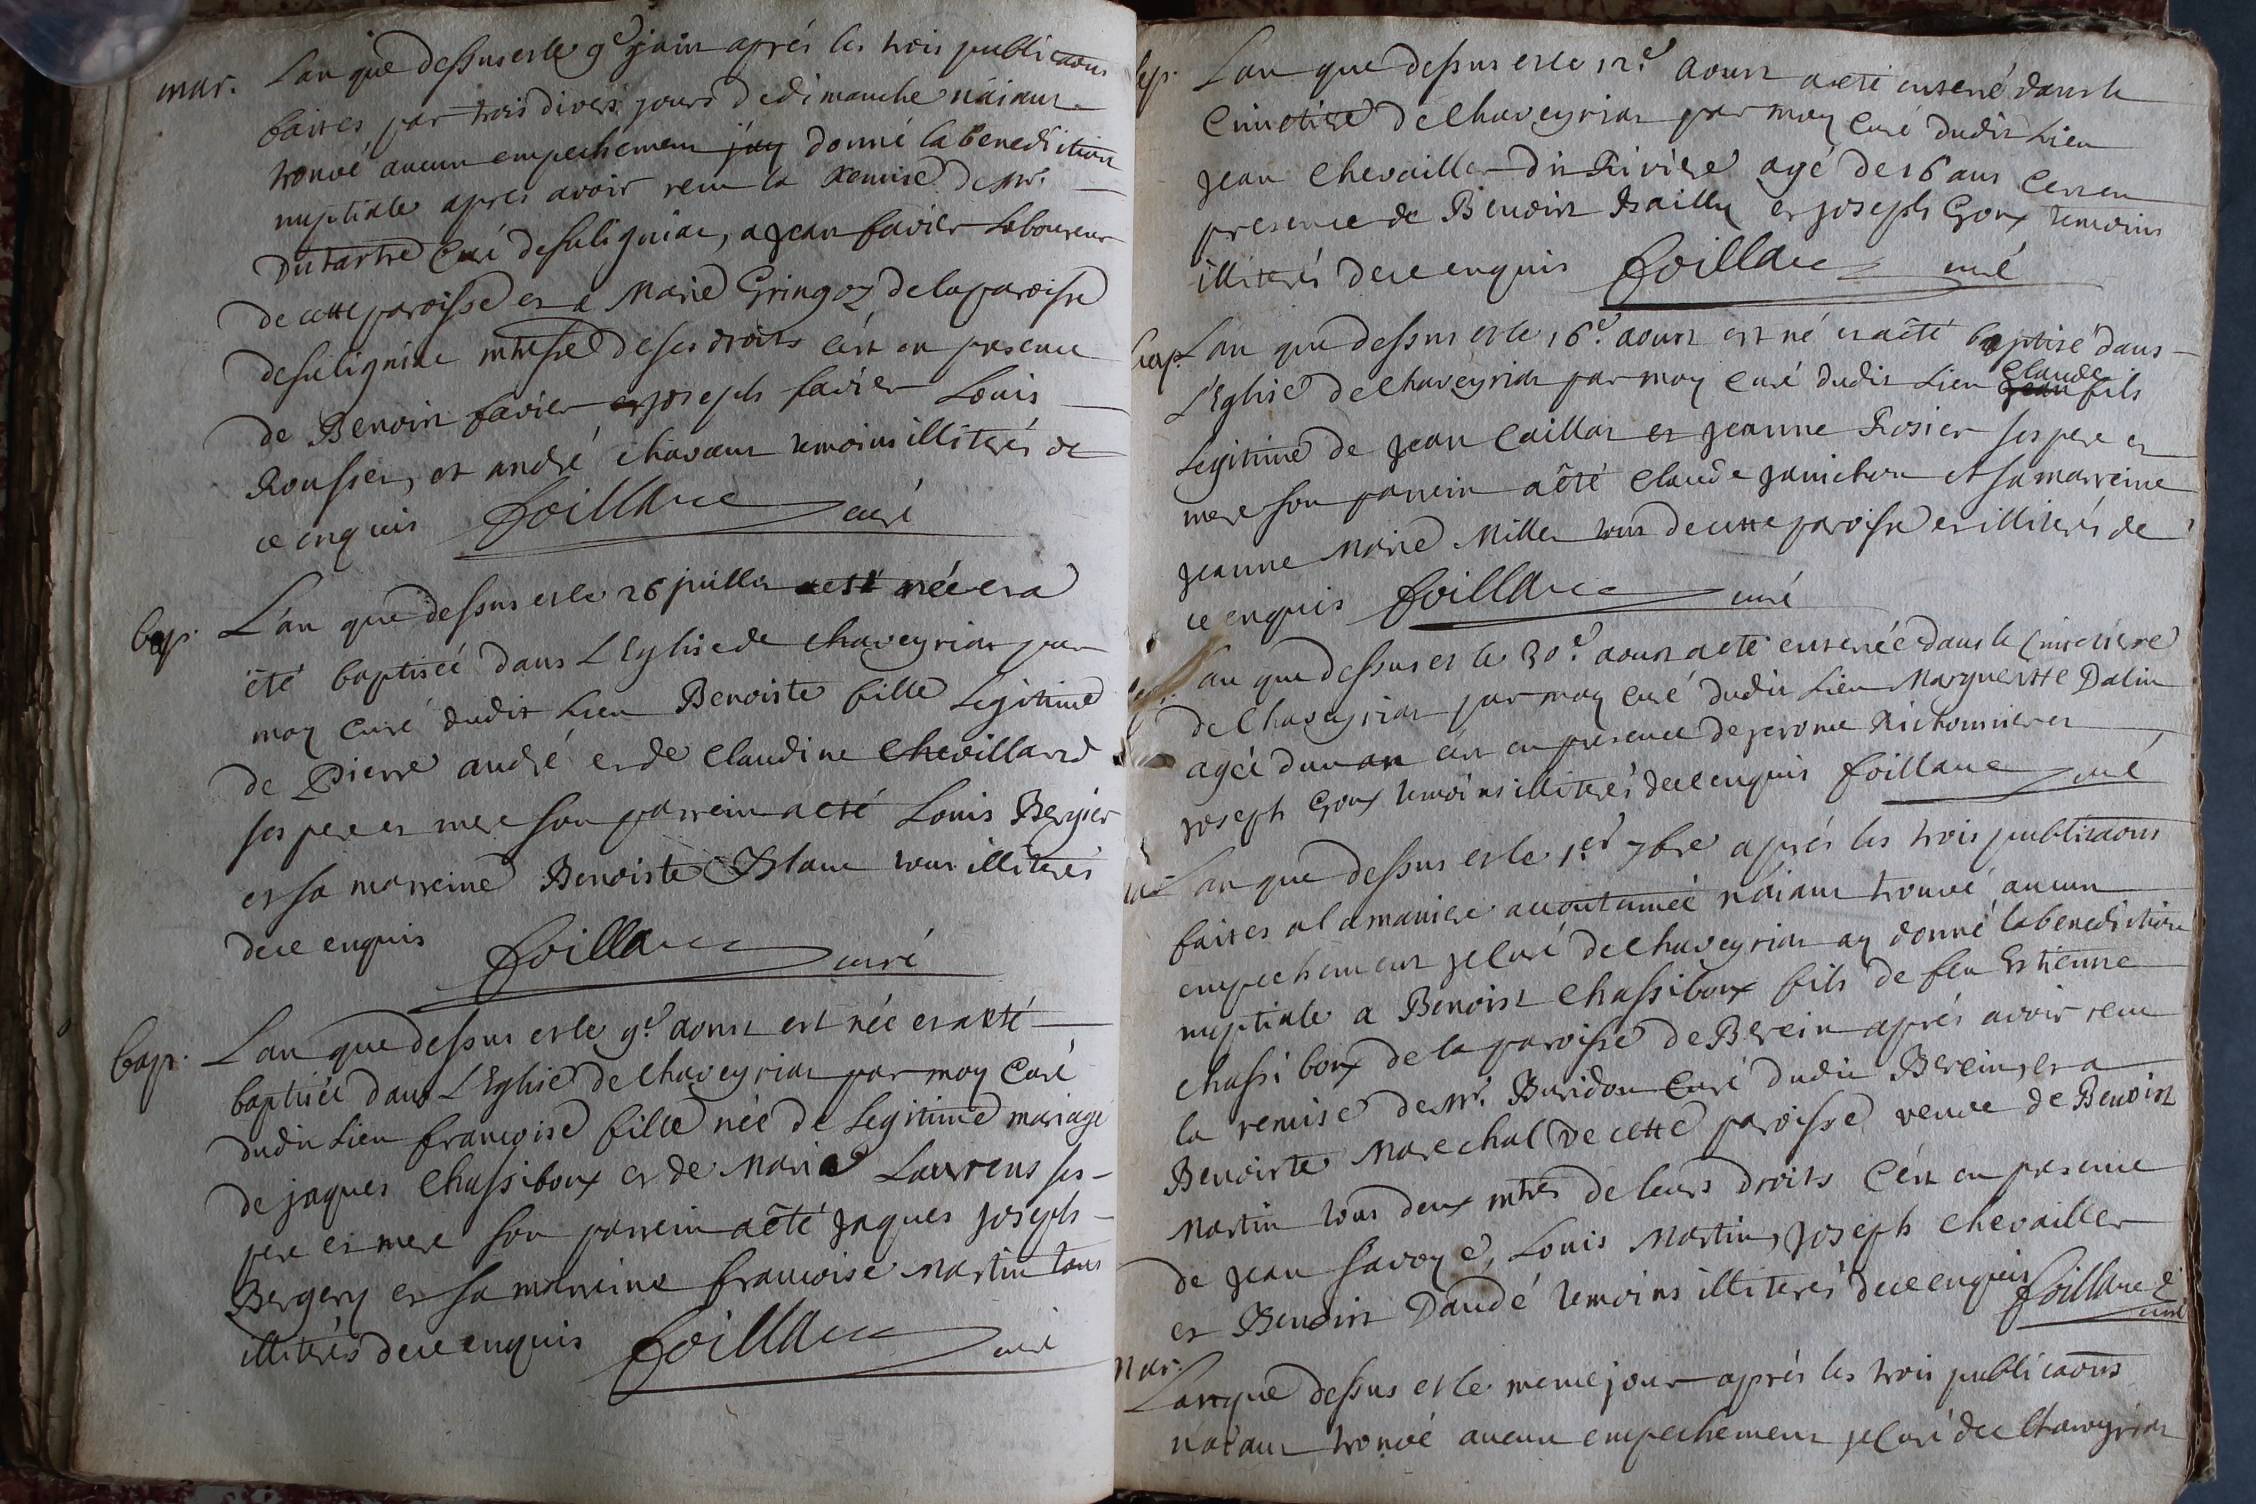 mar. L'an que dessus et le 9e juin aprés les trois publicaons
faittes par trois divers jours de dimanche n'aiant
trouvé aucun empechement j'ay donné la benediction
nuptiale apres avoir receu la Remise de Mr.
Dutartre Curé de suligniac, a Jean favier Laboureur
de cette paroisse et a Marie Gringoz de la paroisse
de suligniac mtresse de ses droits c'est en presence
de Benoist favier et joseph favier Louis
Rousset, et andré chavant temoins illiterés de
ce enquis foillane curé
bap. L'an que dessus et le 26 juillet est née et a
été baptiseé dans L'Eglise de chaveyriat par
moy Curé dudit Lieu Benoiste fille Legitime
de Pierre andré et de Claudine Chevillard
ses pere et mere son parrein a eté Louis Bergier
et sa marreine Benoiste Blanc tous illiterés
de ce enquis foillane curé
bap. L'an que dessus et le 9e aoust est née et a eté
baptiseé dans L'Eglise de chaveyriat par moy Curé
dudit Lieu françoise fille née de Legitime mariage
de jaques Chassiboux et de Marie Laurens ses
pere et mere son parrein a êté Jaques Joseph
Bergery et sa marreine francoise Martin tous
illiterés de ce enquis foillane curé
sep. L'an que dessus et le 12e aoust a eté enterré dans le
Cimetiere de Chaveyriat par moy Curé dudit Lieu
Jean Chevailler dit Riviere agé de 16 ans C'est en
presence de Benoist Bailly et joseph Goux temoins
illiterés de ce enquis foillane curé
bap. L'an que dessus et le 16e aoust est né et a êté baptisé dans
L'Eglise de chaveyriat par moy Curé dudit Lieu Claude
Jean fils
Legitime de Jean Caillat et Jeanne Rosier ses pere et
mere son parrein a êté Claude Janichon et sa marreine
Jeanne Marie Millet tous de cette paroisse et illiterés de
ce enquis foillane curé
L'an que dessus et le 30e aoust a eté enterreé dans le Cimetiere
de Chaveyriat par moy Curé dudit Lieu Marguerite Dalin
ageé d'un an c'est en presence de jerome Richonnier et
joseph Goux temoins illiterés de ce enquis foillane curé
L'an que dessus et le 1er 7bre aprés les trois publicaons
faittes a la maniere accoutumeé n'aiant trouvé aucun
empechement je Curé de Chaveyriat ay donné la benediction
nuptiale a Benoist Chassiboux fils de feu Estienne
Chassiboux de la paroisse de Berein aprés avoir receu
la remise de Mr. Buridon Curé dudit Berein, et a
Benoiste Marechal de cette paroisse veuve de Benoist
Martin tous deux mtres de leurs droits C'est en presence
de Jean Savoye, Louis Martin, Joseph Chevailler
et Benoist Daudé temoins illiterés de ce enquis foillane
curé
Mar. L'an que dessus et le meme jour aprés les trois publicaons
n'aiant trouvé aucun empechement je Curé de Chaveyriat